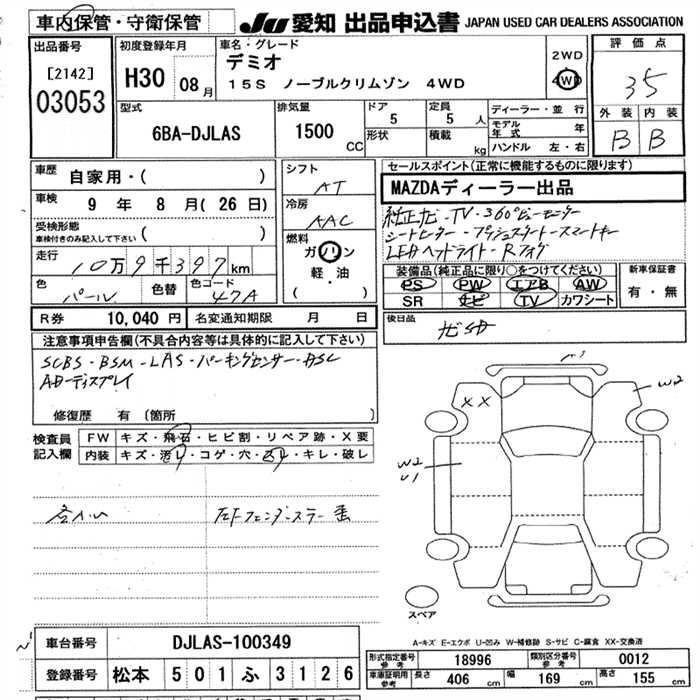 車内保管・守衛保管
JU 愛知 出品申込書 JAPAN USED CAR DEALERS ASSOCIATION
出品番号
[2142]
03053
初度登録年月
H30 08月
車名・グレード
デミオ
15S ノーブルクリムゾン 4WD
2WD
4WD
評価点
35
外装 内装
B B
型式
6BA-DJLAS
排気量
1500 CC
ドア 5
形状
定員 5人
積載 kg
ディーラー・並行
モデル年式 年
ハンドル 左・右
車歴 自家用・( )
車検 9年 8月(26日)
受検形態
車検付きのみ記入して下さい ( )
走行 10万9千397km
色 パール
色替
色コード 47A
シフト AT
冷房 AAC
燃料 ガソリン
軽・油
( )
セールスポイント(正常に機能するものに限ります)
MAZDAディーラー出品
純正ナビ・TV・360°ビューモニター
シートヒーター・プッシュスタート・スマートキー
LEDヘッドライト・Rフォグ
装備品(純正品に限り○をつけてください)
PS PW エアB AW
SR ナビ TV カワシート
新車保証書
有・無
R券 10,040円 名変通知期限 月 日
後日品
ナビSD
注意事項申告欄(不具合内容等は具体的に記入して下さい)
SCBS・BSM・LAS・パーキングセンサー・DSC
ADディスプレイ
修復歴 有 〔箇所 〕
検査員記入欄
FW キズ・飛石・ヒビ割・リペア跡・X要
内装 キズ・汚れ・コゲ・穴・スリ・キレ・破レ
左Fフェンダーステー
XX
W2
W2
U1
スペア
A-キズ E-エクボ U-凹み W-補修跡 S-サビ C-腐食 XX-交換済
車台番号 DJLAS-100349
登録番号 松本 501 ふ 3126
形式指定番号 参考 18996
類別区分番号 参考 0012
車庫証明用 参考 長さ 406 cm 幅 169 cm 高さ 155 cm